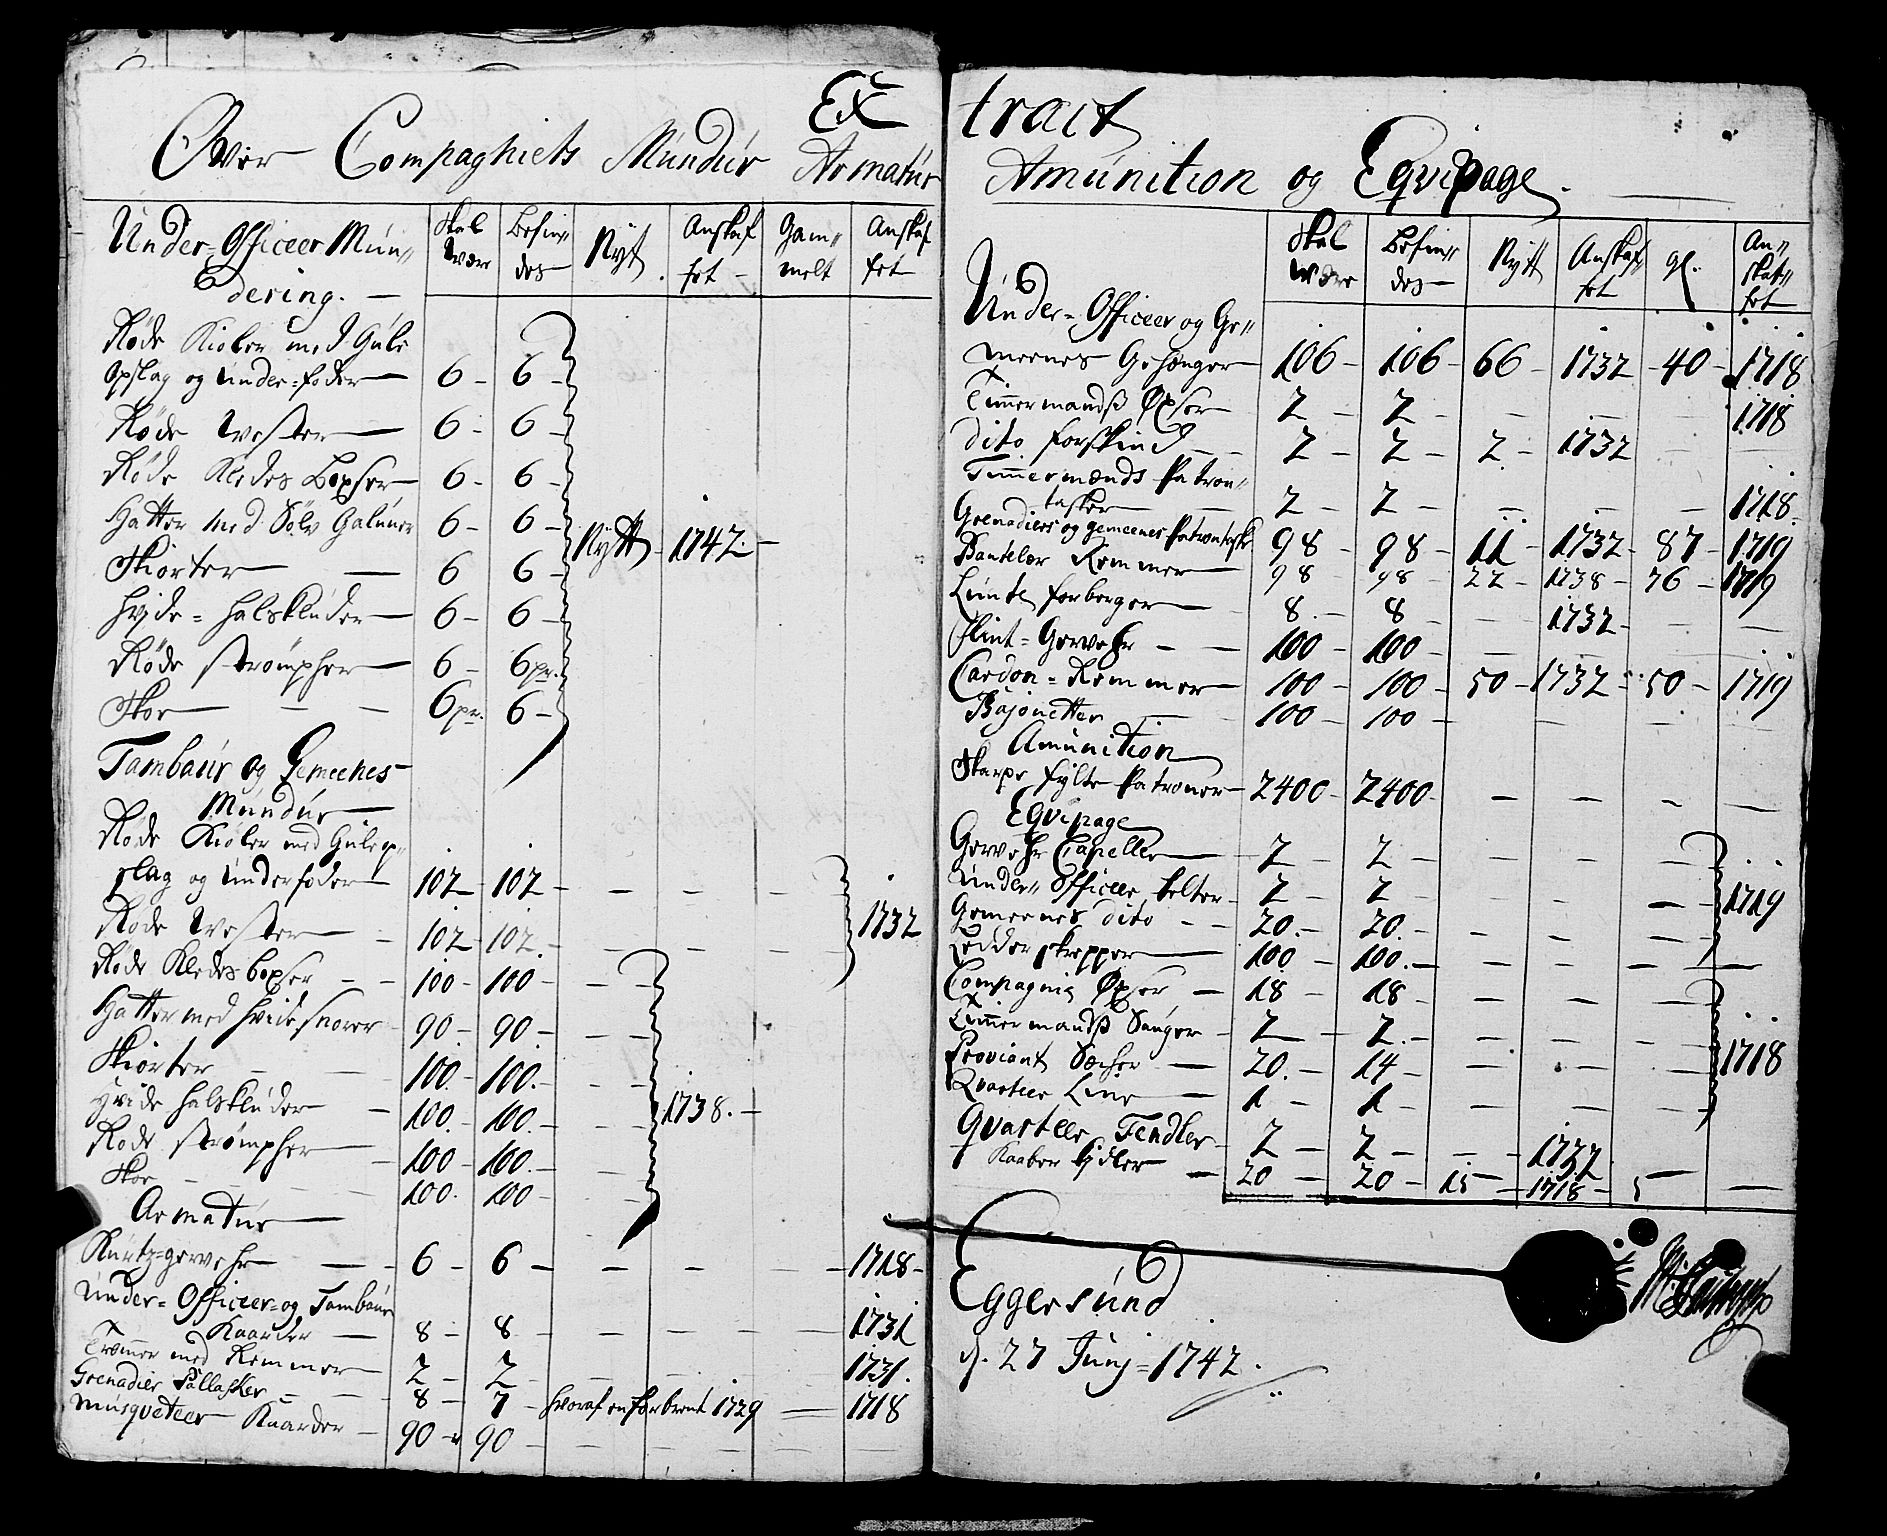 Extract
Over Compagniets Mundúr Armatúr Amúnition og Eqvipage.
Únder=Officeer Mún„ dering. — | Skal være | Befin„ des | Nÿt. | Anskaf fet — | Gam„ melt | Anskaf fet
Røde Kioler med Gúle
Opslag og únder=foder — 6 — 6 —
Røde Vester — 6 — 6 —
Røde Kledes Boxser — 6 — 6 —
Hatter med Sølv Galúner 6 — 6 — Nÿtt — 1742. —
Skiorter — — 6 6 —
Hvide=halsklúder — 6 — 6 —
Røde strømpher — 6 — 6 pr.
Skoe — — — 6 pr. 6 —
Tambaúr og Gemeenes
Múndúr —
Røde Kioler med Gúle op„
slag og únderfoder — 102 — 102 — — — — 1732
Røde Vester — — 102 — 102. — — — —
Røde Kledes boxser — — 100 — 100 — — —
Hatter med hvide snorer — 90 — 90 — — —
Skiorter — — 100 — 100. — — —
Hvide halsklúder — 100. — 100 — — — 1738. —
Røde strømpher — 100 — 100. — —
Skoe — — — 100. 100 — — —
Armatúr —
Kúrtz=gevehr — — 6 — 6 — — — — 1718 —
Únder=Officeer=og Tambaúr
Kaarder — 8 — 8 — — — — — 1731
Tromer med Remmer — 2 — 2 — — — — 1731.
Grenadier Pallasker — — 8 — 7 — hvoraf en forbrent 1729 — 1718
Músqveteer Kaarder — 90 — 90 — — — — —
Únder=Officeer og Ge„ | Skal være | Befin„ des — | Nÿtt | Anskaf„ fet | gl. | An„ skaf„ fet
meenes Gehenger — 106 — 106 — 66 — 1732 — 40 — 1718
Timermandß Øxser — 2 — 2 — — — — 1718
dito forskind — — 2 — 2 — 2. — 1732 — —
Timermænds Patron„
tasker — 2 — 2 — — — — 1718.
Grenadiers og gemeenes Patrontasker 98 — 98 — 11 — 1732 — 87 — 1719
Remmer — 98 — 98 — 22 — 1738 — 76 — 1719
Lúnte forberger — 8. — 8 — — 1732 — — —
Flint=Gevehr — — 100 — 100 — — — — —
Cardon=Remmer — 100 — 100 — 50 — 1732 — 50 — 1719
Bajonetter — 100 — 100 — — — —
Amúnition
Skarpe fÿlte Patroner — 2400 — 2400 — — — — —
Eqvipage
Gevehr Capeller — 2 — 2 — — — —
Únder„ Officeer telter — 2 — 2 — — — — 1719
Gemeenes dito — — 20. — 20. — — — —
Ledder skrepper — 100 — 100. — — — — —
Compagnie Øxser — 18 — 18 — — — —
Timermandß Saúger — 2 — 2. — — — —
Proviant Secher — 20. — 14 — — — — 1718
Qvarteer Line — 1 — 1 — — — —
Qvarteer Fendler — 2 — 2 — — 1732
Kaaber kidler — 20 — 20 — 15 — 1718 — 5 — —
Eggersúnd
d. 27 Junj = 1742.